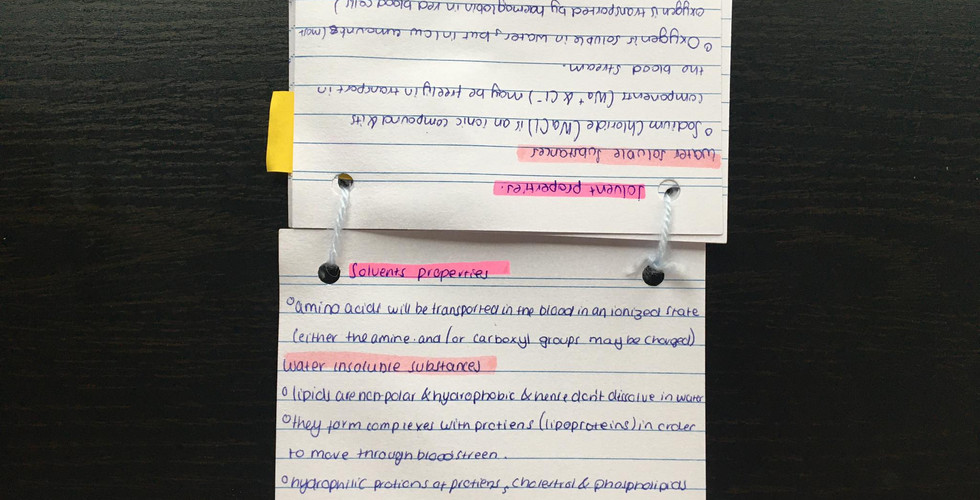 Solvent properties.
Water soluble substances
o Sodium Chloride (NaCl) is an ionic compound & its
components (Na+ & Cl-) may be freely in transport in
the blood stream.
o Oxygen is soluble in water, but in low ammounts (most
oxygen is transported by haemoglobin in red blood cells)
Solvents properties
o amino acids will be transported in the blood in an ionized state
(either the amine and/or carboxyl groups may be charged)
Water insoluble substances
o lipids are non-polar & hydrophobic & hence don't dissolve in water
o they form complexes with protiens (lipoproteins) in order
to move through bloodstreen.
o hydrophilic protions of protiens, cholestrol & phospholipids